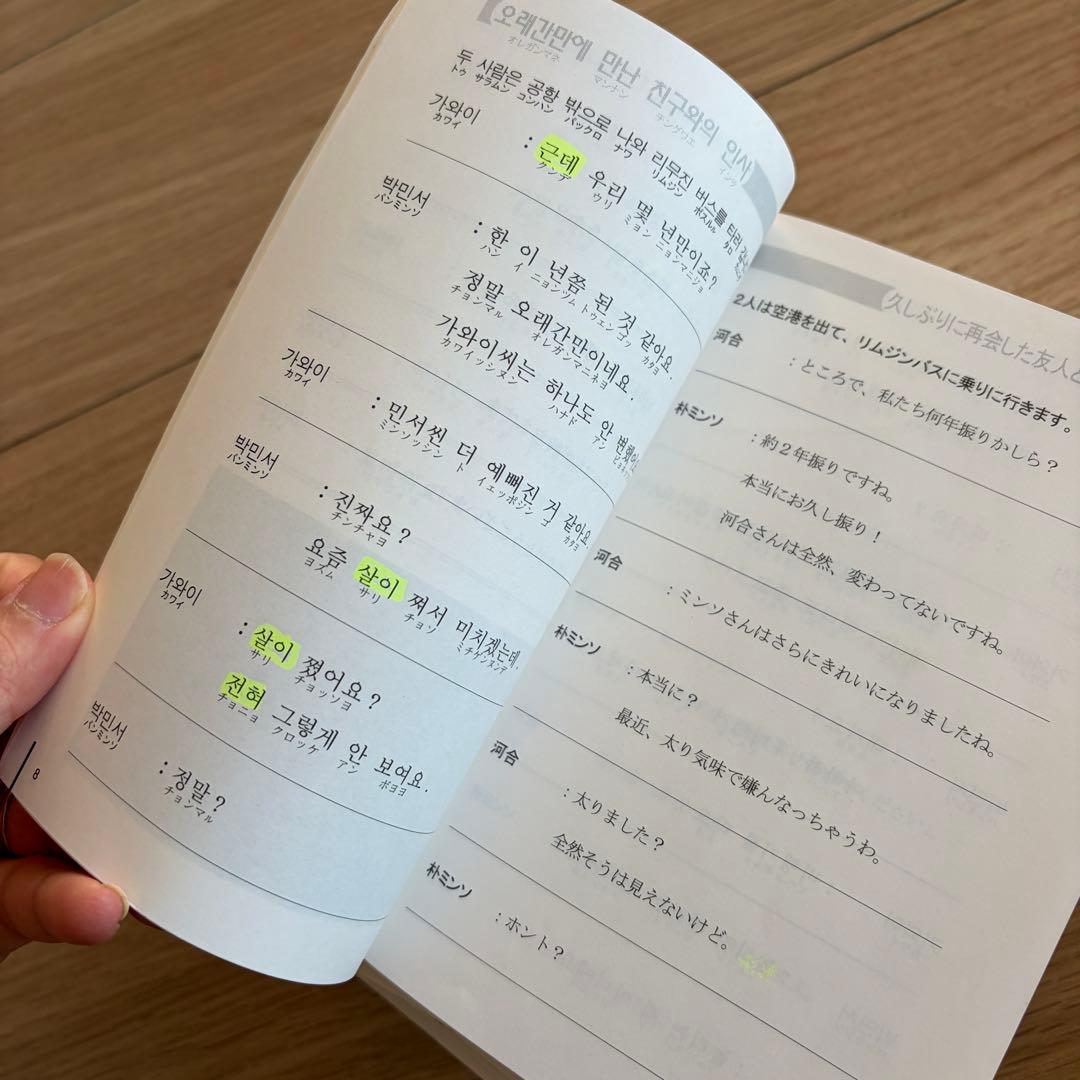 오래간만에 만난 친구와의 인사
オレガンマネ マンナン チングワエ インサ
두 사람은 공항 밖으로 나와 리무진 버스를 타러
トゥ サラムン コンハン パックロ ナワ リムジン ボスルル タロ
가와이
カワイ
: 근데 우리 몇 년만이죠?
クンデ ウリ ミョン ニョンマニジョ
박민서
パンミンソ
: 한 이 년쯤 된 것 같아요.
ハン イ ニョンツム トウェンゴッ カタヨ
정말 오래간만이네요.
チョンマル オレガンマニネヨ
가와이씨는 하나도 안
カワイッシヌン ハナド アン
가와이
カワイ
: 민서씬 더 예뻐진 거 같아요
ミンソッシン ト イエッポジン ゴ カタヨ
박민서
パンミンソ
: 진짜요?
チンチャヨ
요즘 살이 쪄서 미치겠는데.
ヨズム サリ チョソ ミチゲンヌンデ
가와이
カワイ
: 살이 쪘어요?
サリ チョッソヨ
전혀 그렇게 안 보여요.
チョニョ クロッケ アン ボヨヨ
박민서
パンミンソ
: 정말?
チョンマル
8
久しぶりに再会した友人と
2人は空港を出て、リムジンバスに乗りに行きます。
河合
：ところで、私たち何年振りかしら？
朴ミンソ
：約2年振りですね。
本当にお久し振り！
河合さんは全然、変わってないですね。
河合
：ミンソさんはさらにきれいになりましたね。
朴ミンソ
：本当に？
最近、太り気味で嫌んなっちゃうわ。
河合
：太りました？
全然そうは見えないけど。
朴ミンソ
：ホント？